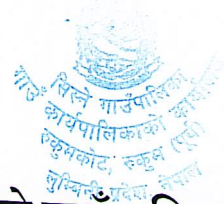 सिस्ने गाउँपालिका
गाउँ कार्यपालिकाको कार्यालय
रुकुमकोट, रुकुम (पूर्व)
लुम्बिनी प्रदेश नेपाल